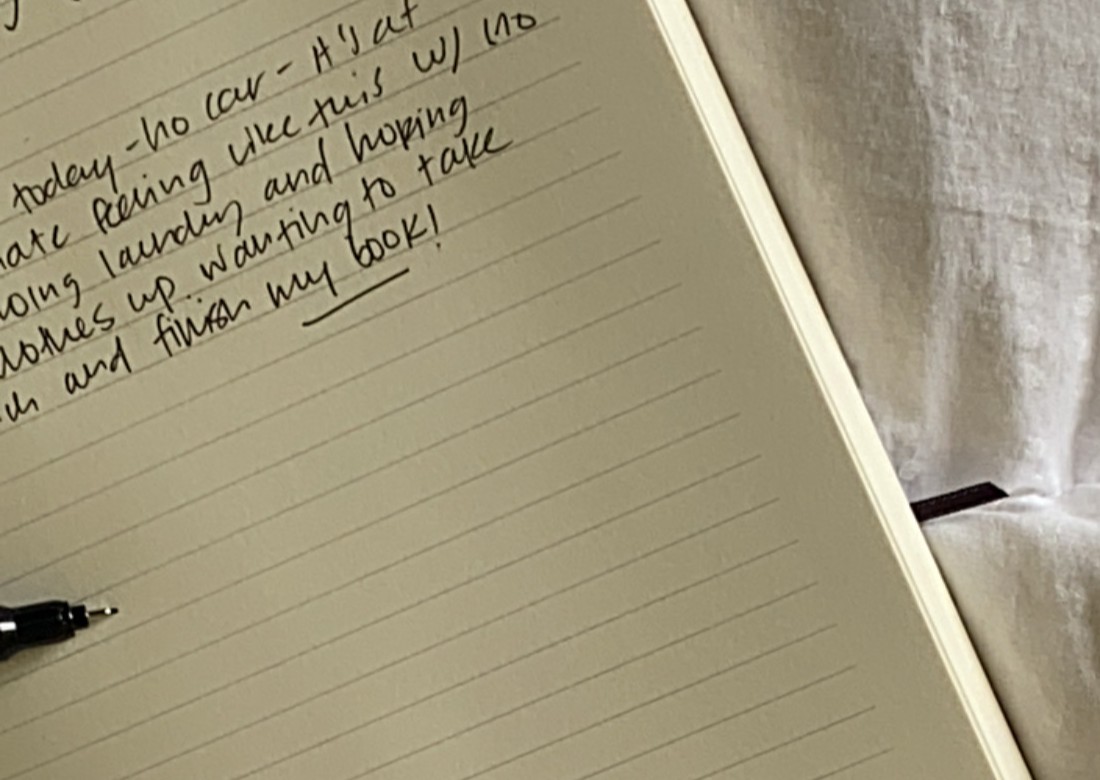 today - no car - it's at
feeling like this w/ no
laundry and hoping
up. wanting to take
and finish my book!